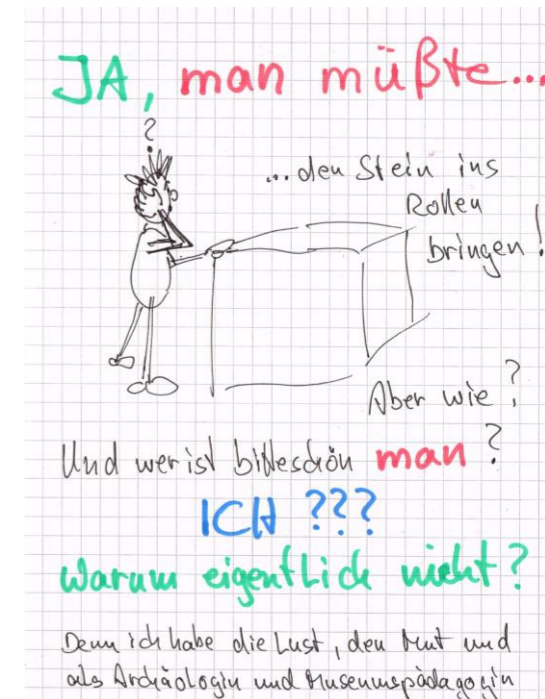 JA, man müßte...
?
...den Stein ins
Rollen
bringen!
Aber wie?
Und wer ist bitteschön man?
ICH ???
Warum eigentlich nicht?
Denn ich habe die Lust, den Mut und
als Archäologin und Museumspädagogin